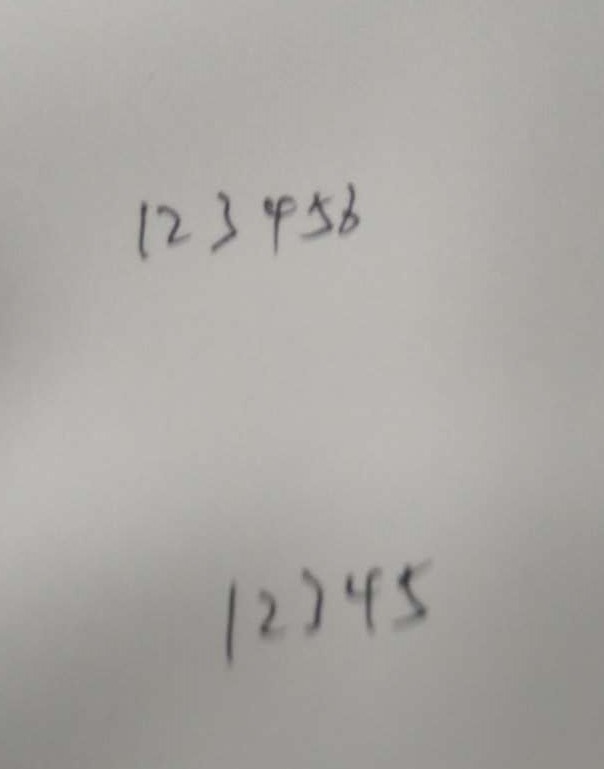 123456
12345